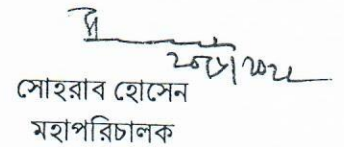 সোহরাব হোসেন
মহাপরিচালক